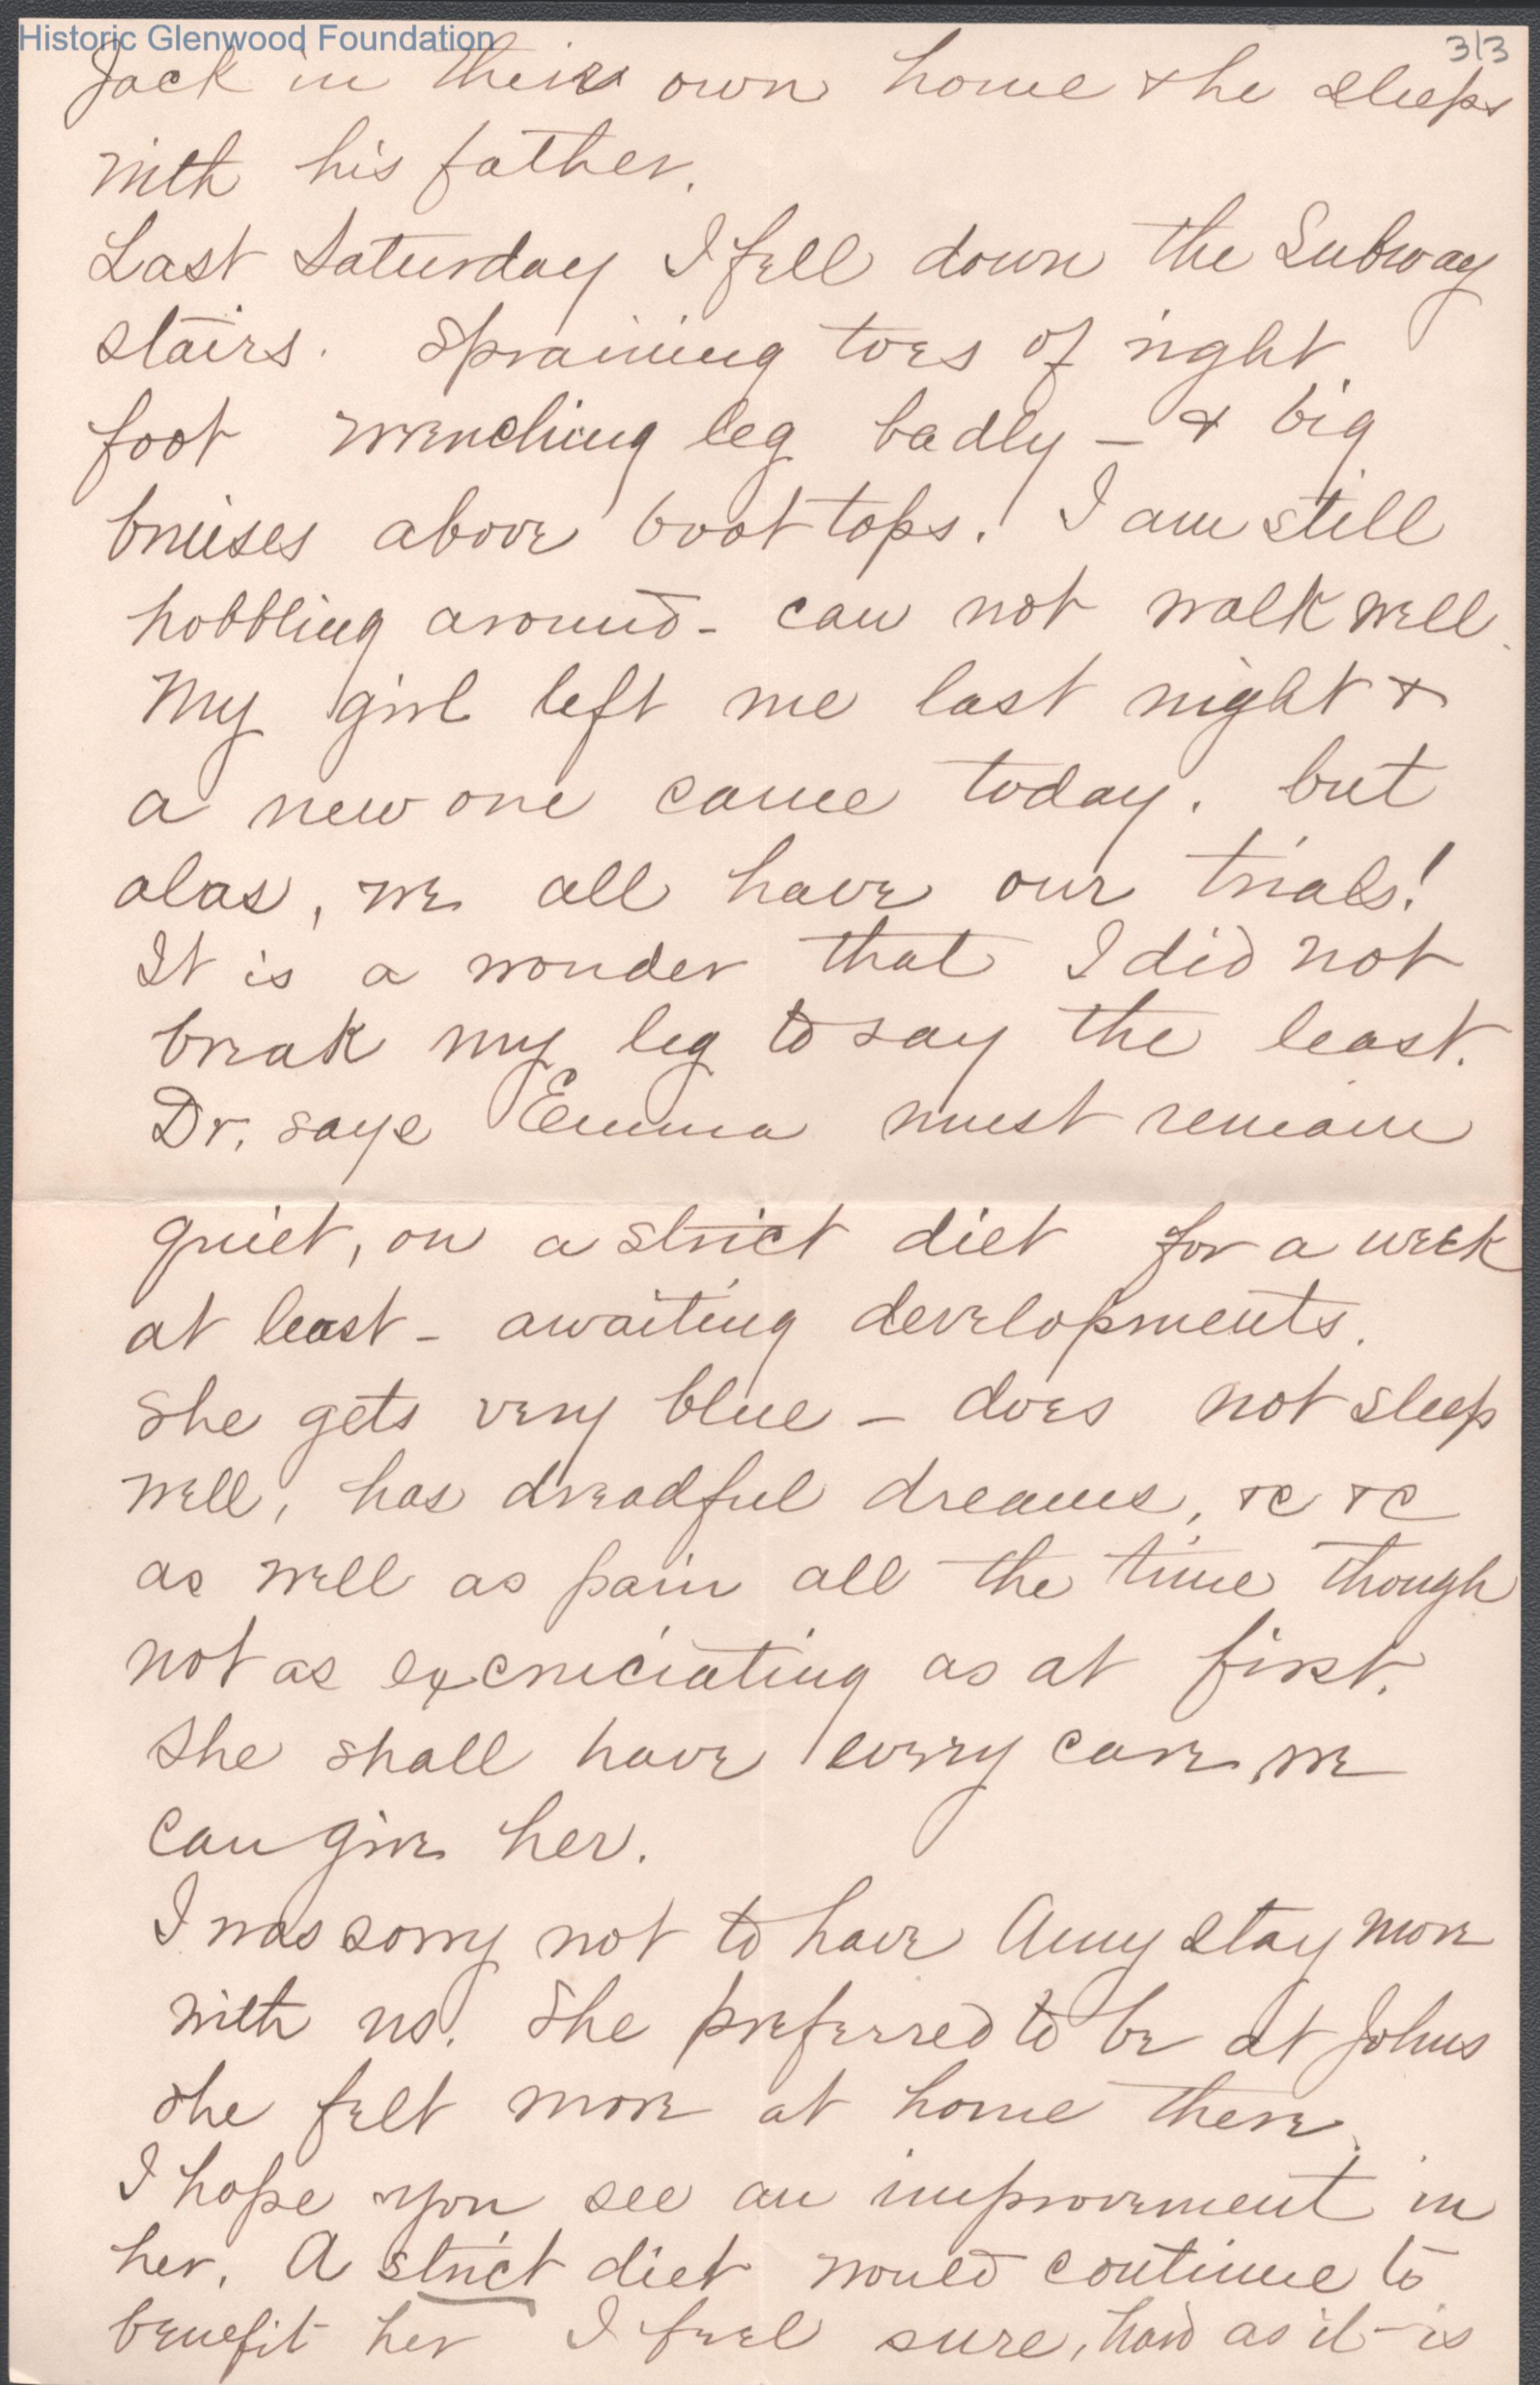 Historic Glenwood Foundation
3/3
Jack in their own home & he sleeps
with his father.
Last Saturday I fell down the Subway
stairs. Spraining toes of right
foot wrenching leg badly – & big
bruises above boot tops. I am still
hobbling around – can not walk well.
My girl left me last night &
a new one came today. but
alas, we all have our trials!
It is a wonder that I did not
break my leg to say the least.
Dr. says Emma must remain
quiet, on a strict diet for a week
at least – awaiting developments.
She gets very blue – does not sleep
well, has dreadful dreams, &c &c
as well as pain all the time though
not as excruciating as at first.
She shall have every care we
can give her.
I was sorry not to have Amy stay more
with us. She preferred to be at Johns
She felt more at home there.
I hope you see an improvement in
her. A strict diet would continue to
benefit her I feel sure, hard as it is